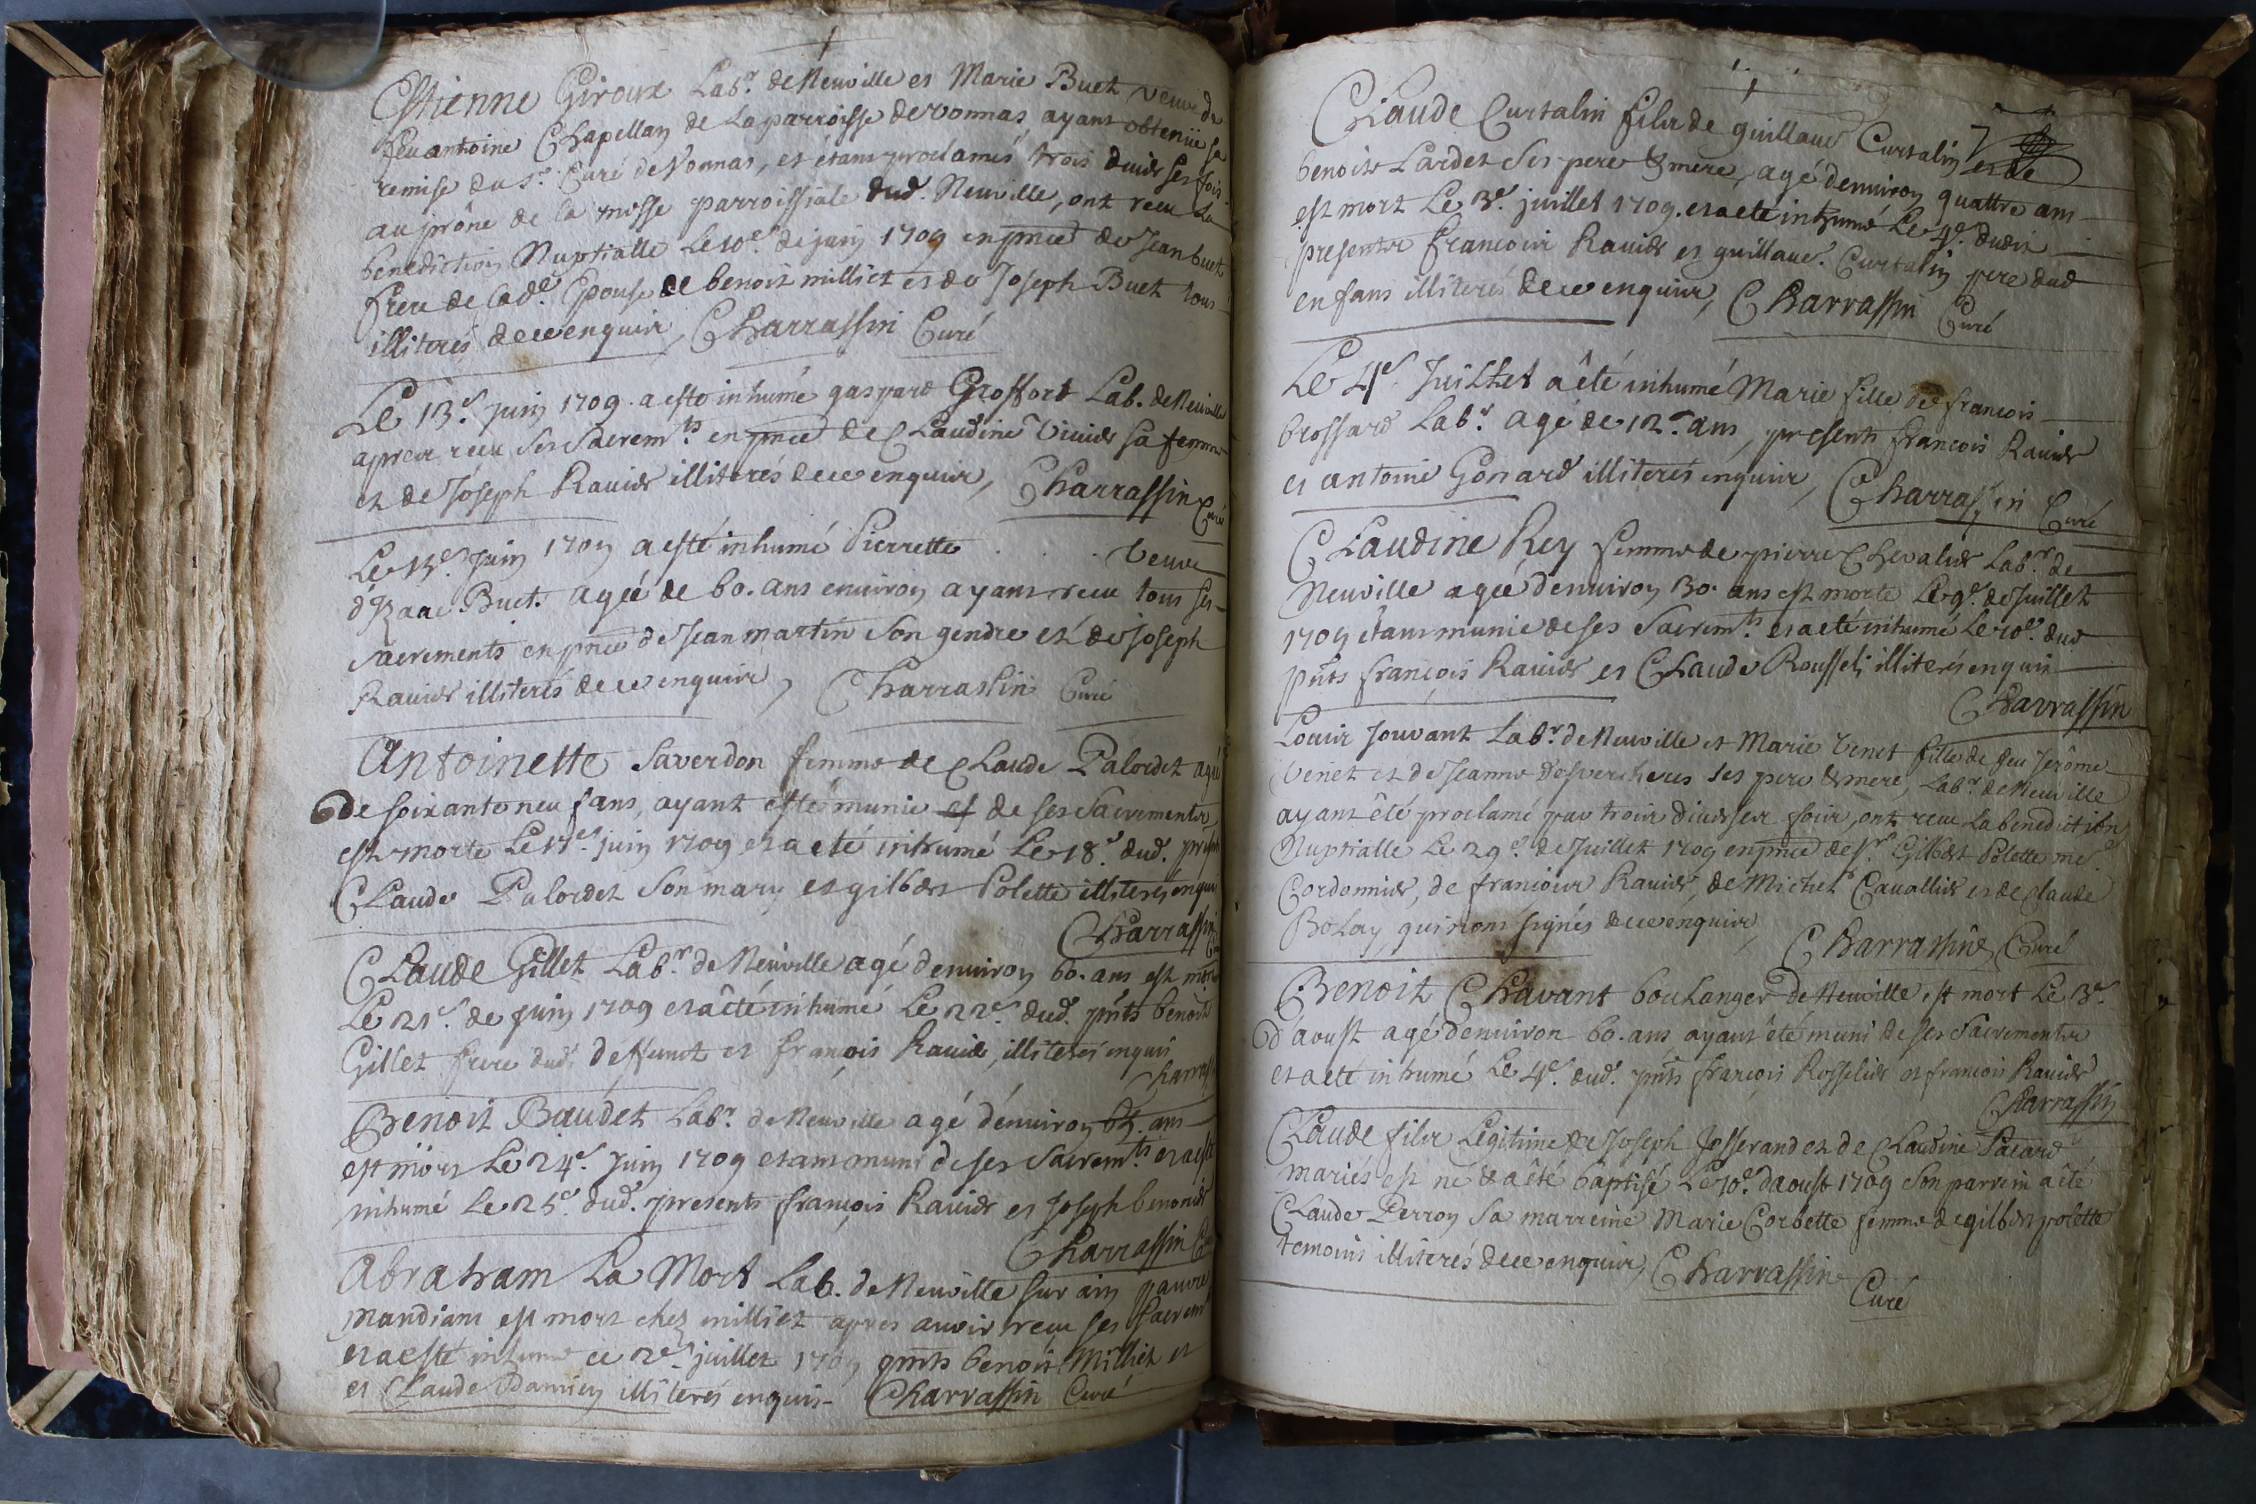 Estienne Giroux Labr. de Neuville et Marie Buet veuve de
feu antoine Chapellan de La parroisse de vonnas ayant obtenüe sa
remise du sr. Curé de Vonnas, et étans proclamés trois divdes fois
au prône de la messe parroissiale dud. Neuville, ont receu La
benediction Nuptialle Le 10e. de juin 1709 en pnce de Jean buet
frere de lade. Epouse de benoit milliet et de Joseph Buet tous
illiterés de ce enquis, Charrassin Curé
Le 13e. juin 1709. a esté inhumé gaspard Groffort Lab. de Neuville
apres receu ses Sacremts. en pnce de Claudine Vivier sa femme
et de Joseph Ravier illiterés de ce enquis, Charrassin Curé
Le 13e. Juin 1709 a esté inhumé Pierrette . . . Veuve
d'Izaac Buet. agée de 60. ans environ ayans receu tous ses
sacrements en pnce de Jean martin son gendre et de Joseph
Ravier illiterés de ce enquis, Charrassin Curé
Antoinette Saverdon femme de Claude Palordet agée
de soixante neuf ans, ayant esté munie de ses Sacrements
est morte Le 17e. juin 1709 et a eté inhumé Le 18e. dud. presents
Claude Palordet son mary et gilbert Polette illiterés enquis
Charrassin
Claude Gillet Labr. de Neuville agé d'environ 60. ans est mort
Le 21e. de juin 1709 et a êté inhumé Le 22e. dud. pnts benoit
Gillet frere dud. deffunct et françois Ravier, illiterés enquis
Charrassin
Benoit Baudet Labr. de Neuville agé d'environ ans
est mort Le 24e. Juin 1709 etans muni de ses Sacremts. et a esté
inhumé Le 25e. dud. presents françois Ravier et Joseph benonier
Charrassin
Abraham La Mort Lab. de Neuville sur ain pauvre
mandians est mort chez milliet apres avoir receu ses Sacremts
et a esté inhumé ce 2e. juillet 1709 pnts benoit Milliet et
et Claude Damien illiterés enquis. Charrassin Curé
Claude Curtalin fils de guillaue Curtalin et de
benoite Lardet ses pere & mere, agé d'environ quattre ans
est mort Le 3e. juillet 1709. et a eté inhumé Le 4e. dudit
presents francois Ravier et guillaue. Curtalin pere dud
enfans illiterés de ce enquis, Charrassin Curé
Le 4e. Juillet a êté inhumé Marie fille de francois
brossard Labr. agé de 12. ans, presents francois Ravier
et antoine Gonard illiterés enquis, Charrassin Curé
Claudine Rey femme de pierre Chevalier Labr. de
Neuville agée d'environ 30. ans est morte Le 9e. de Juillet
1709 étans munie de ses Sacremts. et a eté inhumé Le 10e. dud
pnts françois Ravier et Claude Roussel illiterés enquis
Charrassin
Louis Jouvant Labr. de Neuville et Marie Venet fille de feu Jerôme
Venet et de Jeanne Despercheres ses pere & mere, Labr. de Neuville
ayans êté proclamé par trois diverses fois, ont receu La benediction
Nuptialle Le 29e. de Juillet 1709 en pnce de sr. Gilbert Polette me.
Cordonnier, de françois Ravier, de Michel Cavallier et de Claude
Bolay, qui n'ont signés de ce enquis, Charrassin Curé
Benoit Chavant boulanger de Neuville est mort Le 3e.
d'aoust agé d'environ 60. ans ayant êté muni de ses Sacrements
et a eté inhumé Le 4e. dud. pnts françois Rosselier et françois Ravier
Charrassin
Claude fils Legitime de Joseph Josserand et de Claudine Pacard
mariés est né & a êté baptisé Le 10e. d'aoust 1709 Son parrein a êté
Claude Perron Sa marreine Marie Corbette femme de gilbert polette
temoins illiterés de ce enquis, Charrassin
Curé